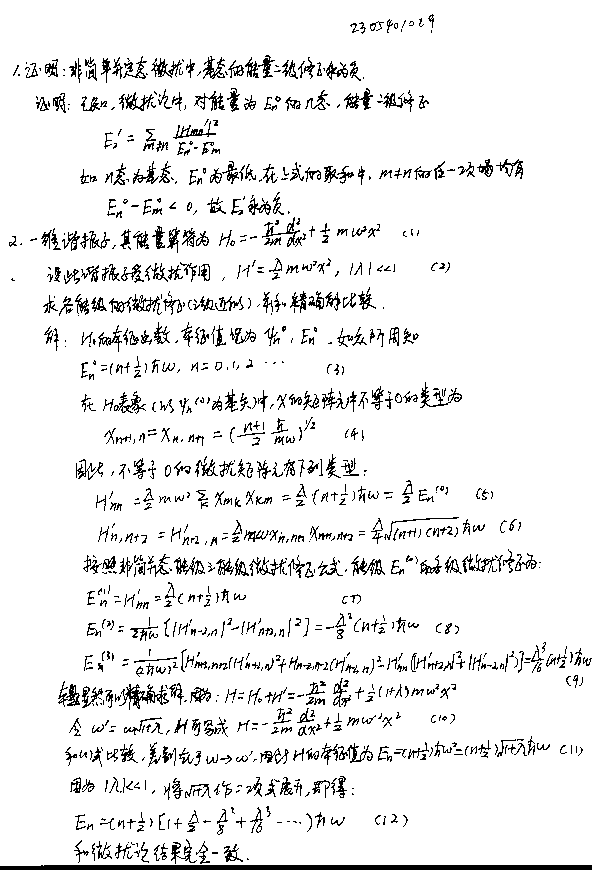 2305401029
1.证明:非简单并定态微扰中,基态的能量二级修正永为负.
证明:已知,微扰论中,对能量为 En⁰ 的 n 态,能量二级修正
E₂' = Σ_{m≠n} |Hmn'|²/(En⁰-Em⁰)
如 n 态为基态, En⁰ 为最低,在上式的取和中, m≠n 的任一项均有
En⁰-Em⁰<0, 故 E₂' 永为负.
2.一维谐振子,其能量算符为 H₀=-ℏ²/2m d²/dx²+1/2 mω²x² (1)
设此谐振子受微扰作用, H'=λ/2 mω²x², |λ|<<1 (2)
求各能级的微扰修正(三级近似),并和精确解比较.
解: H₀的本征函数,本征值记为 ψn⁰, En⁰. 如众所周知
En⁰=(n+1/2)ℏω, n=0,1,2 ⋯ (3)
在 H₀表象(以 ψn⁽⁰⁾为基矢)中, x的矩阵元中不等于0的类型为
xn+1,n=xn,n+1=(n+1/2 ℏ/mω)^1/2 (4)
因此,不等于0的微扰矩阵元有下列类型:
H'nn=λ/2 mω² Σk xnk xkn=λ/2 (n+1/2)ℏω=λ/2 En⁽⁰⁾ (5)
H'n,n+2=H'n+2,n=λ/2 mω xn,n+1 xn+1,n+2=λ/4 √(n+1)(n+2) ℏω (6)
按照非简并态能级三能级微扰修正公式,能级 En⁽⁰⁾ 的各级微扰修正为:
En⁽¹⁾=H'nn=λ/2 (n+1/2)ℏω (7)
En⁽²⁾=1/2ℏω [|H'n-2,n|²-|H'n+2,n|²]=-λ²/8 (n+1/2)ℏω (8)
En⁽³⁾=1/(2ℏω)² [H'n+2,n+2(H'n+2,n)²+Hn-2,n-2(H'n-2,n)²-H'nn(|H'n+2,n|²+|H'n-2,n|²)]=λ³/16 (n+1/2)ℏω
(9)
本题显然可以精确求解,因为: H=H₀+H'=-ℏ²/2m d²/dx²+1/2 (1+λ)mω²x²
令 ω'=ω√1+λ, H可写成 H=-ℏ²/2m d²/dx²+1/2 mω'²x² (10)
和(1)式比较,差别在于 ω→ω',因此 H的本征值为 En=(n+1/2)ℏω'=(n+1/2)√1+λ ℏω (11)
因为 |λ|<<1, 将√1+λ 作二项式展开,即得:
En=(n+1/2)[1+λ/2-λ²/8+λ³/16-⋯)ℏω (12)
和微扰论结果完全一致.